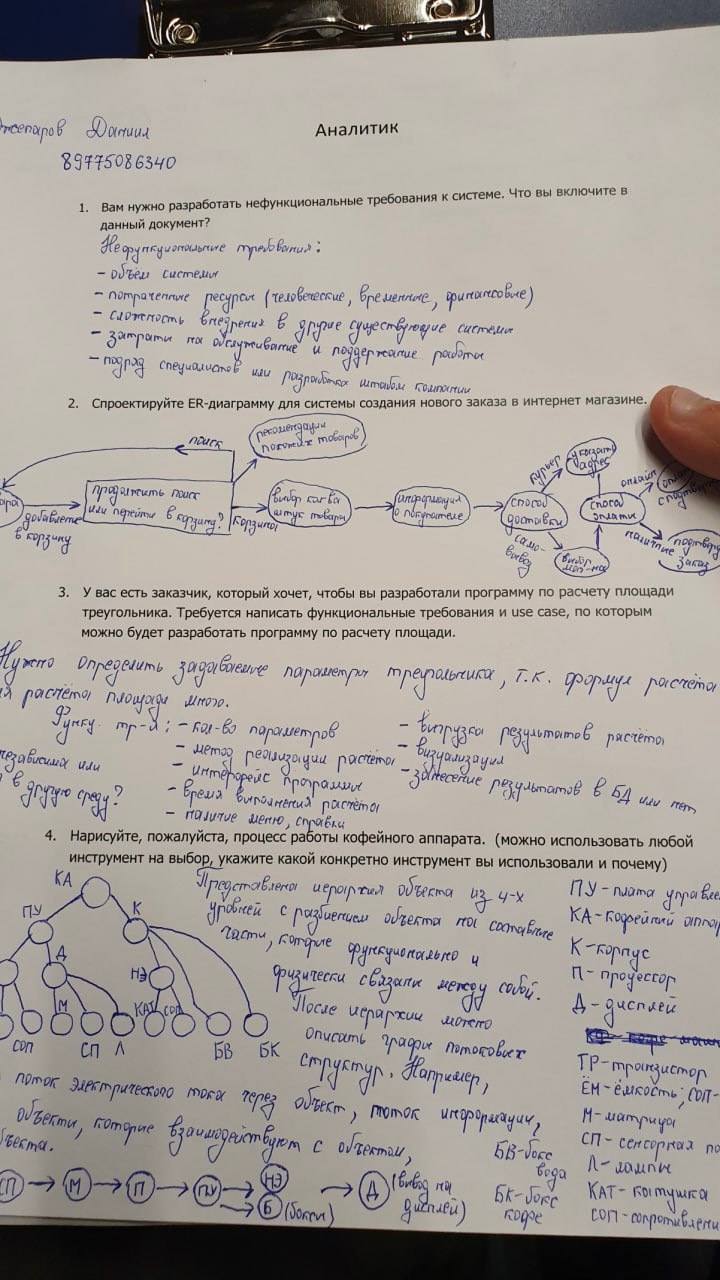 Джепаров Даниил
89775086340
Аналитик
1. Вам нужно разработать нефункциональные требования к системе. Что вы включите в
данный документ?
Нефункциональные требования:
- объём системы
- потраченные ресурсы (человеческие, временные, финансовые)
- сложность внедрения в другие существующие системы
- затраты на обслуживание и поддержание работы
- подряд специалистов или разработка штабом компании
2. Спроектируйте ER-диаграмму для системы создания нового заказа в интернет магазине.
поиск
рекомендации
похожих товаров
добавляете
в корзину
продолжить поиск
или перейти в корзину?
корзина
выбор кол-ва
штук товара
информация
о покупателе
способ
доставки
курьер
указать
адрес
само-
вывоз
выбор
способ
оплаты
онлайн
наличные
заказ
3. У вас есть заказчик, который хочет, чтобы вы разработали программу по расчету площади
треугольника. Требуется написать функциональные требования и use case, по которым
можно будет разработать программу по расчету площади.
Нужно определить задаваемые параметры треугольника, т.к. формул расчёта
расчёта площади много.
Функц. тр-я: - кол-во параметров
- метод реализации расчёта
- интерфейс программы
- время выполнения расчёта
- наличие меню, справки
- выгрузка результатов расчёта
- визуализация
- занесение результатов в БД или нет
независима или
в другую среду?
4. Нарисуйте, пожалуйста, процесс работы кофейного аппарата. (можно использовать любой
инструмент на выбор, укажите какой конкретно инструмент вы использовали и почему)
КА
ПУ К
Д НЭ
М КАТ СОП
СОП СП Л БВ БК
Представлена иерархия объекта из 4-х
уровней с разбиением объекта на составные
части, которые функционально и
физически связаны между собой.
После иерархии можно
описать графы потоковых
структур. Например,
поток электрического тока через объект, поток информации,
объекты, которые взаимодействуют с объектом,
ПУ - плата
КА - кофейный
К - корпус
П - процессор
Д - дисплей
ТР - транзистор
ЁМ - ёмкость; СОП -
М - матрица
СП - сенсорная
Л - лампы
КАТ - катушка
СОП - сопротивление
БВ - бокс
вода
БК - бокс
кофе
СП → М → П → ПУ → НЭ
Б (боксы)
→ Д (вывод на
дисплей)